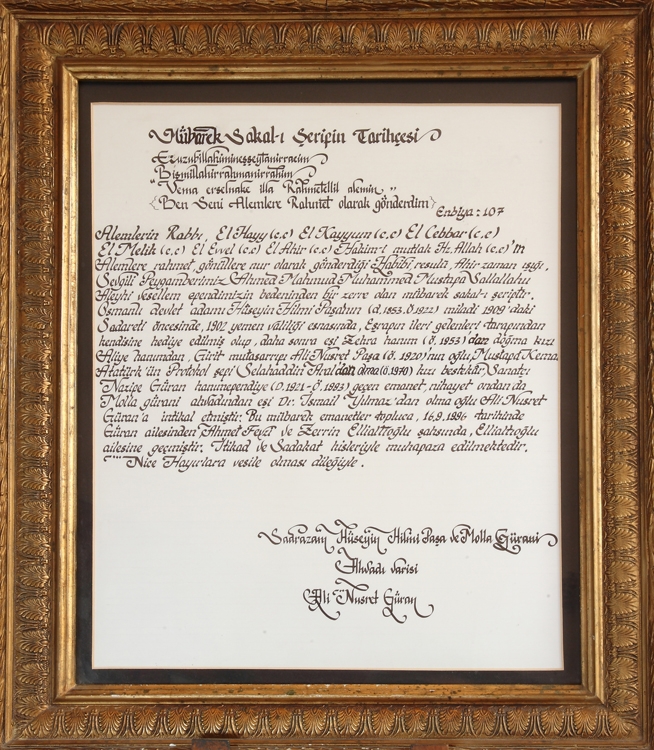 Mübarek Sakal-ı Şerifin Tarihçesi
Euzubillahimineşşeytanirracim
Bismillahirrahmanirrahim
"Vema erselnake illa Rahmetellil alemin"
(Ben Seni Alemlere Rahmet olarak gönderdim)
Enbiya : 107
Alemlerin Rabbi, El Hayy (c.c) El Kayyum (c.c) El Cebbar (c.c)
El Melik (c.c) El Evvel (c.c) El Ahir (c.c) Hakim-i mutlak Hz. Allah (c.c)'m
Alemlere rahmet, gönüllere nur olarak gönderdiği Habibi resulü, Ahir zaman ışığı,
Sevgili Peygamberimiz Ahmed Mahmud Muhammed Mustafa Sallallahu
Aleyhi vesellem efendimizin bedeninden bir zerre olan mübarek sakal-ı şeriftir.
Osmanlı devlet adamı Hüseyin Hilmi Paşanın (d.1853.ö.1922) miladi 1909'daki
Sadareti öncesinde, 1902 yemen valiliği esnasında, Eşrafın ileri gelenleri tarafından
kendisine hediye edilmiş olup, daha sonra eşi Zehra hanım (ö. 1953)'dan doğma kızı
Aliye hanımdan, Girit mutasarrıfı Ali Nusret Paşa (ö. 1920)'nun oğlu, Mustafa Kemal
Atatürk'ün Protokol şefi Selahaddin Aral'dan olma (ö.1970) kızı bestekâr, Sanatçı
Nazife Güran hanımefendiye (D.1921-Ö.1993) geçen emanet, nihayet ondan da
Molla gürani ahvadından eşi Dr. İsmail Yılmaz'dan olma oğlu Ali Nusret
Güran'a intikal etmiştir. Bu mübarek emanetler topluca, 16.9.1996 tarihinde
Güran ailesinden, Ahmet Fevzi ve Zerrin Ellialtıoğlu şahsında, Ellialtıoğlu
ailesine geçmiştir. İtikad ve Sadakat hisleriyle muhafaza edilmektedir.
Nice Hayırlara vesile olması dileğiyle.
Sadrazam Hüseyin Hilmi Paşa ve Molla Gürani
Ahvadı varisi
Ali Nusret Güran